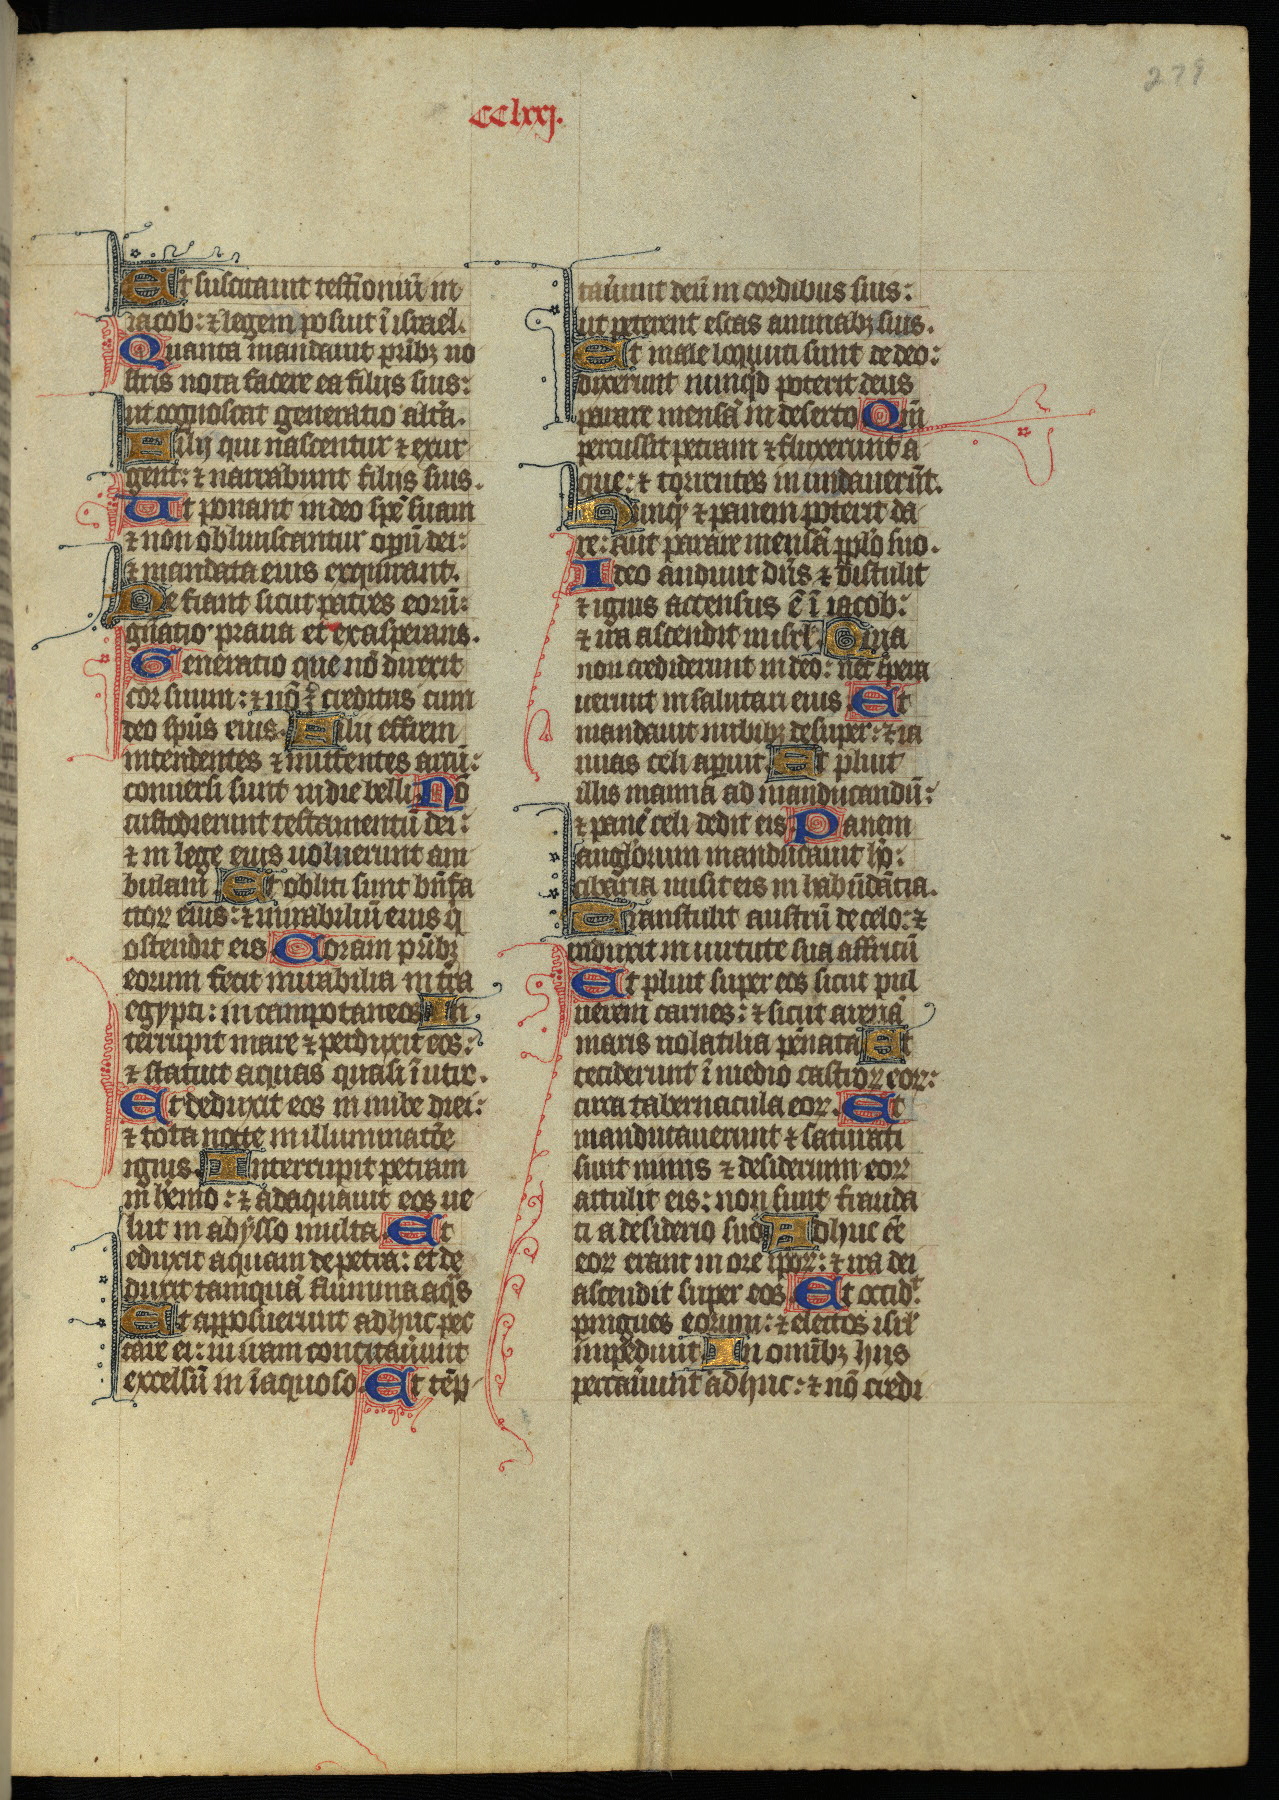 279
CClxxj.
Et suscitauit testīoniū in
iacob: ⁊ legem posuit ī israel.
Quanta mandauit pr̄ibꝫ no
stris nota facere ea filijs suis:
ut cognoscat generatio altā.
Filij qui nascentur ⁊ exur
gent: ⁊ narrabunt filijs suis.
Ut ponant in deo spē suam
⁊ non obliuiscantur oꝑū dei:
⁊ mandata eius exquirant.
Ne fiant sicut patres eorū:
gn̄atio praua et exasperans.
Generatio que nō direxit
cor suum: ⁊ nō ē creditus cum
deo sp̄us eius. Filii effrem
intendentes ⁊ mittentes arcū:
conuersi sunt in die belli. Nō
custodierunt testamentū dei:
⁊ in lege eius uoluerunt am
bulare. Et obliti sunt bn̄fa
ctoꝝ eius: ⁊ mirabiliū eius q̄
ostendit eis. Coram pr̄ibꝫ
eorum fecit mirabilia in tr̄a
egypti: in campo taneos. In
terrupit mare ⁊ perduxit eos:
⁊ statuit aquas quasi ī utre.
Et deduxit eos in nube diei:
⁊ tota nocte in illuminatōe
ignis. Interrupit petram
in h̄emo: ⁊ adaquauit eos ue
lut in abysso multa. Et
eduxit aquam de petra: et de
duxit tamquā flumina aq̄s
Et apposuerunt adhuc pec
care ei: in iram concitauūnt
excelsū in īaquoso. Et tēp
tauūnt deū in cordibus suis:
ut peterent escas animabꝫ suis.
Et male locuti sunt de deo:
dixerunt nunqd poterit deus
parare mensā in deserto. Qm̄
percussit petram ⁊ fluxerunt a
que: ⁊ torrentes inundauerūt.
Nunqd ⁊ panem poterit da
re: aut parare mensā pplo suo.
Ideo audiuit dn̄s ⁊ distulit
⁊ ignis accensus ē ī iacob:
⁊ ira ascendit in isrl. Quia
non crediderunt in deo: nec spera
uerunt in salutari eius. Et
mandauit nubibꝫ desuper: ⁊ ia
nuas celi aperuit. Et pluit
illis manna ad manducandū:
⁊ panē celi dedit eis. Panem
anglorum manducauit hō:
cibaria misit eis in habūdātia.
Transtulit austrū de celo: ⁊
induxit in uirtute sua affricū
Et pluit super eos sicut pul
uerem carnes: ⁊ sicut arenā
maris uolatilia pēnata. Et
ceciderunt ī medio castroꝝ eoꝝ:
circa tabernacula eoꝝ. Et
manducauerunt ⁊ saturati
sunt nimis ⁊ desiderium eoꝝ
attulit eis: non sunt frauda
ti a desiderio suo. Adhuc esē
eoꝝ erant in ore ipoꝝ: ⁊ ira dei
ascendit super eos. Et occidͭ
pingues eorum: ⁊ electos isrl
impediuit. In omībꝫ hijs
peccauūnt adhuc: ⁊ nō credi